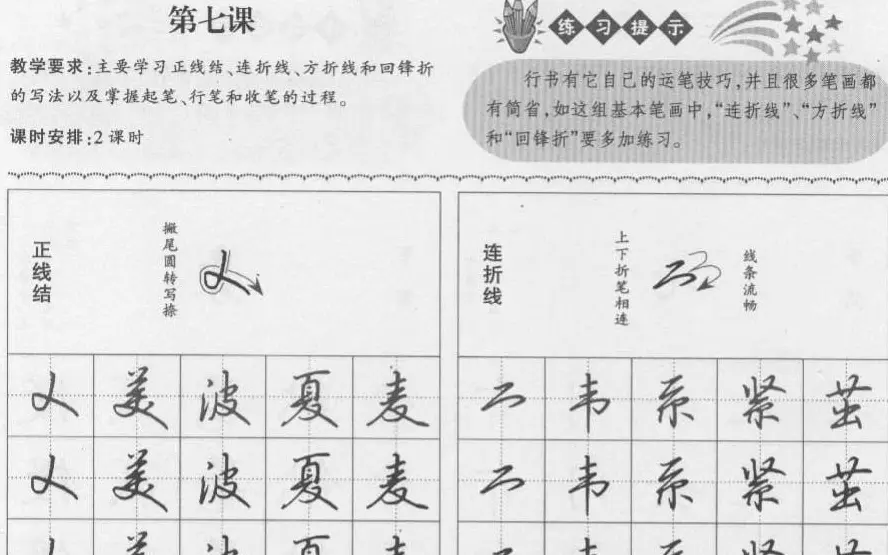 第七课
教学要求:主要学习正线结、连折线、方折线和回锋折
的写法以及掌握起笔、行笔和收笔的过程。
课时安排:2课时
练习提示
行书有它自己的运笔技巧,并且很多笔画都
有简省,如这组基本笔画中,“连折线”、“方折线”
和“回锋折”要多加练习。
正线结
撇尾圆转写捺
美波夏麦
美波夏麦
连折线
上下折笔相连
线条流畅
韦系紧茧
韦系紧茧